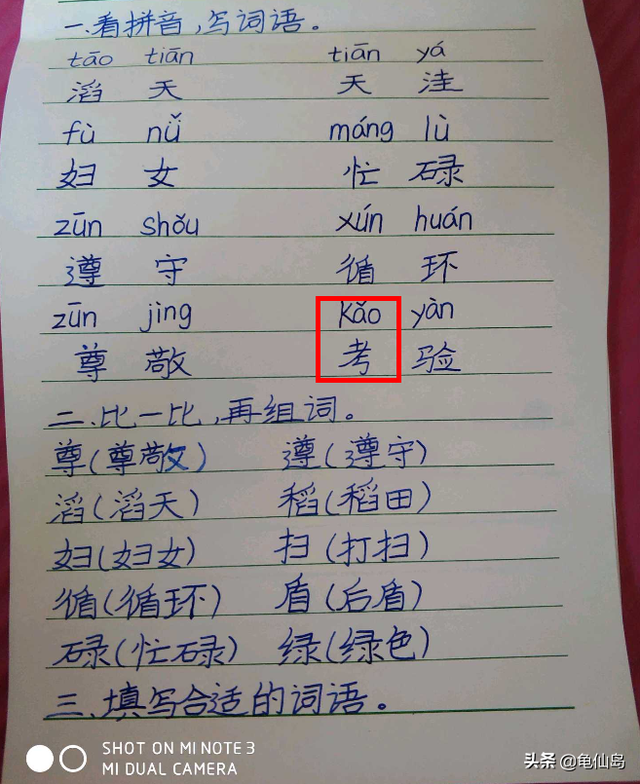 一、看拼音,写词语。
tāo tiān tiān yá
滔 天 天 洼
fù nǚ máng lù
妇 女 忙 碌
zūn shǒu xún huán
遵 守 循 环
zūn jìng kǎo yàn
尊 敬 考 验
二、比一比,再组词。
尊(尊敬) 遵(遵守)
滔(滔天) 稻(稻田)
妇(妇女) 扫(打扫)
循(循环) 盾(后盾)
碌(忙碌) 绿(绿色)
三、填写合适的词语。
SHOT ON MI NOTE 3
MI DUAL CAMERA
头条 @龟仙岛